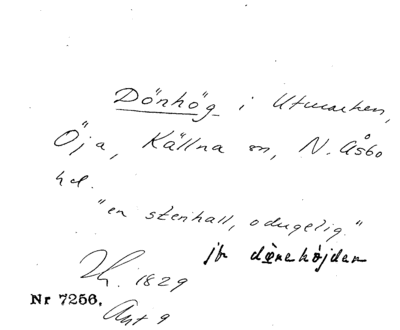 Dönhög i Utmarken,
Öja, Källna sn, N. Åsbo
hd.
"en stenhall, odugelig."
jfr dönehöjden
1829
Nr 7256.
Akt 9